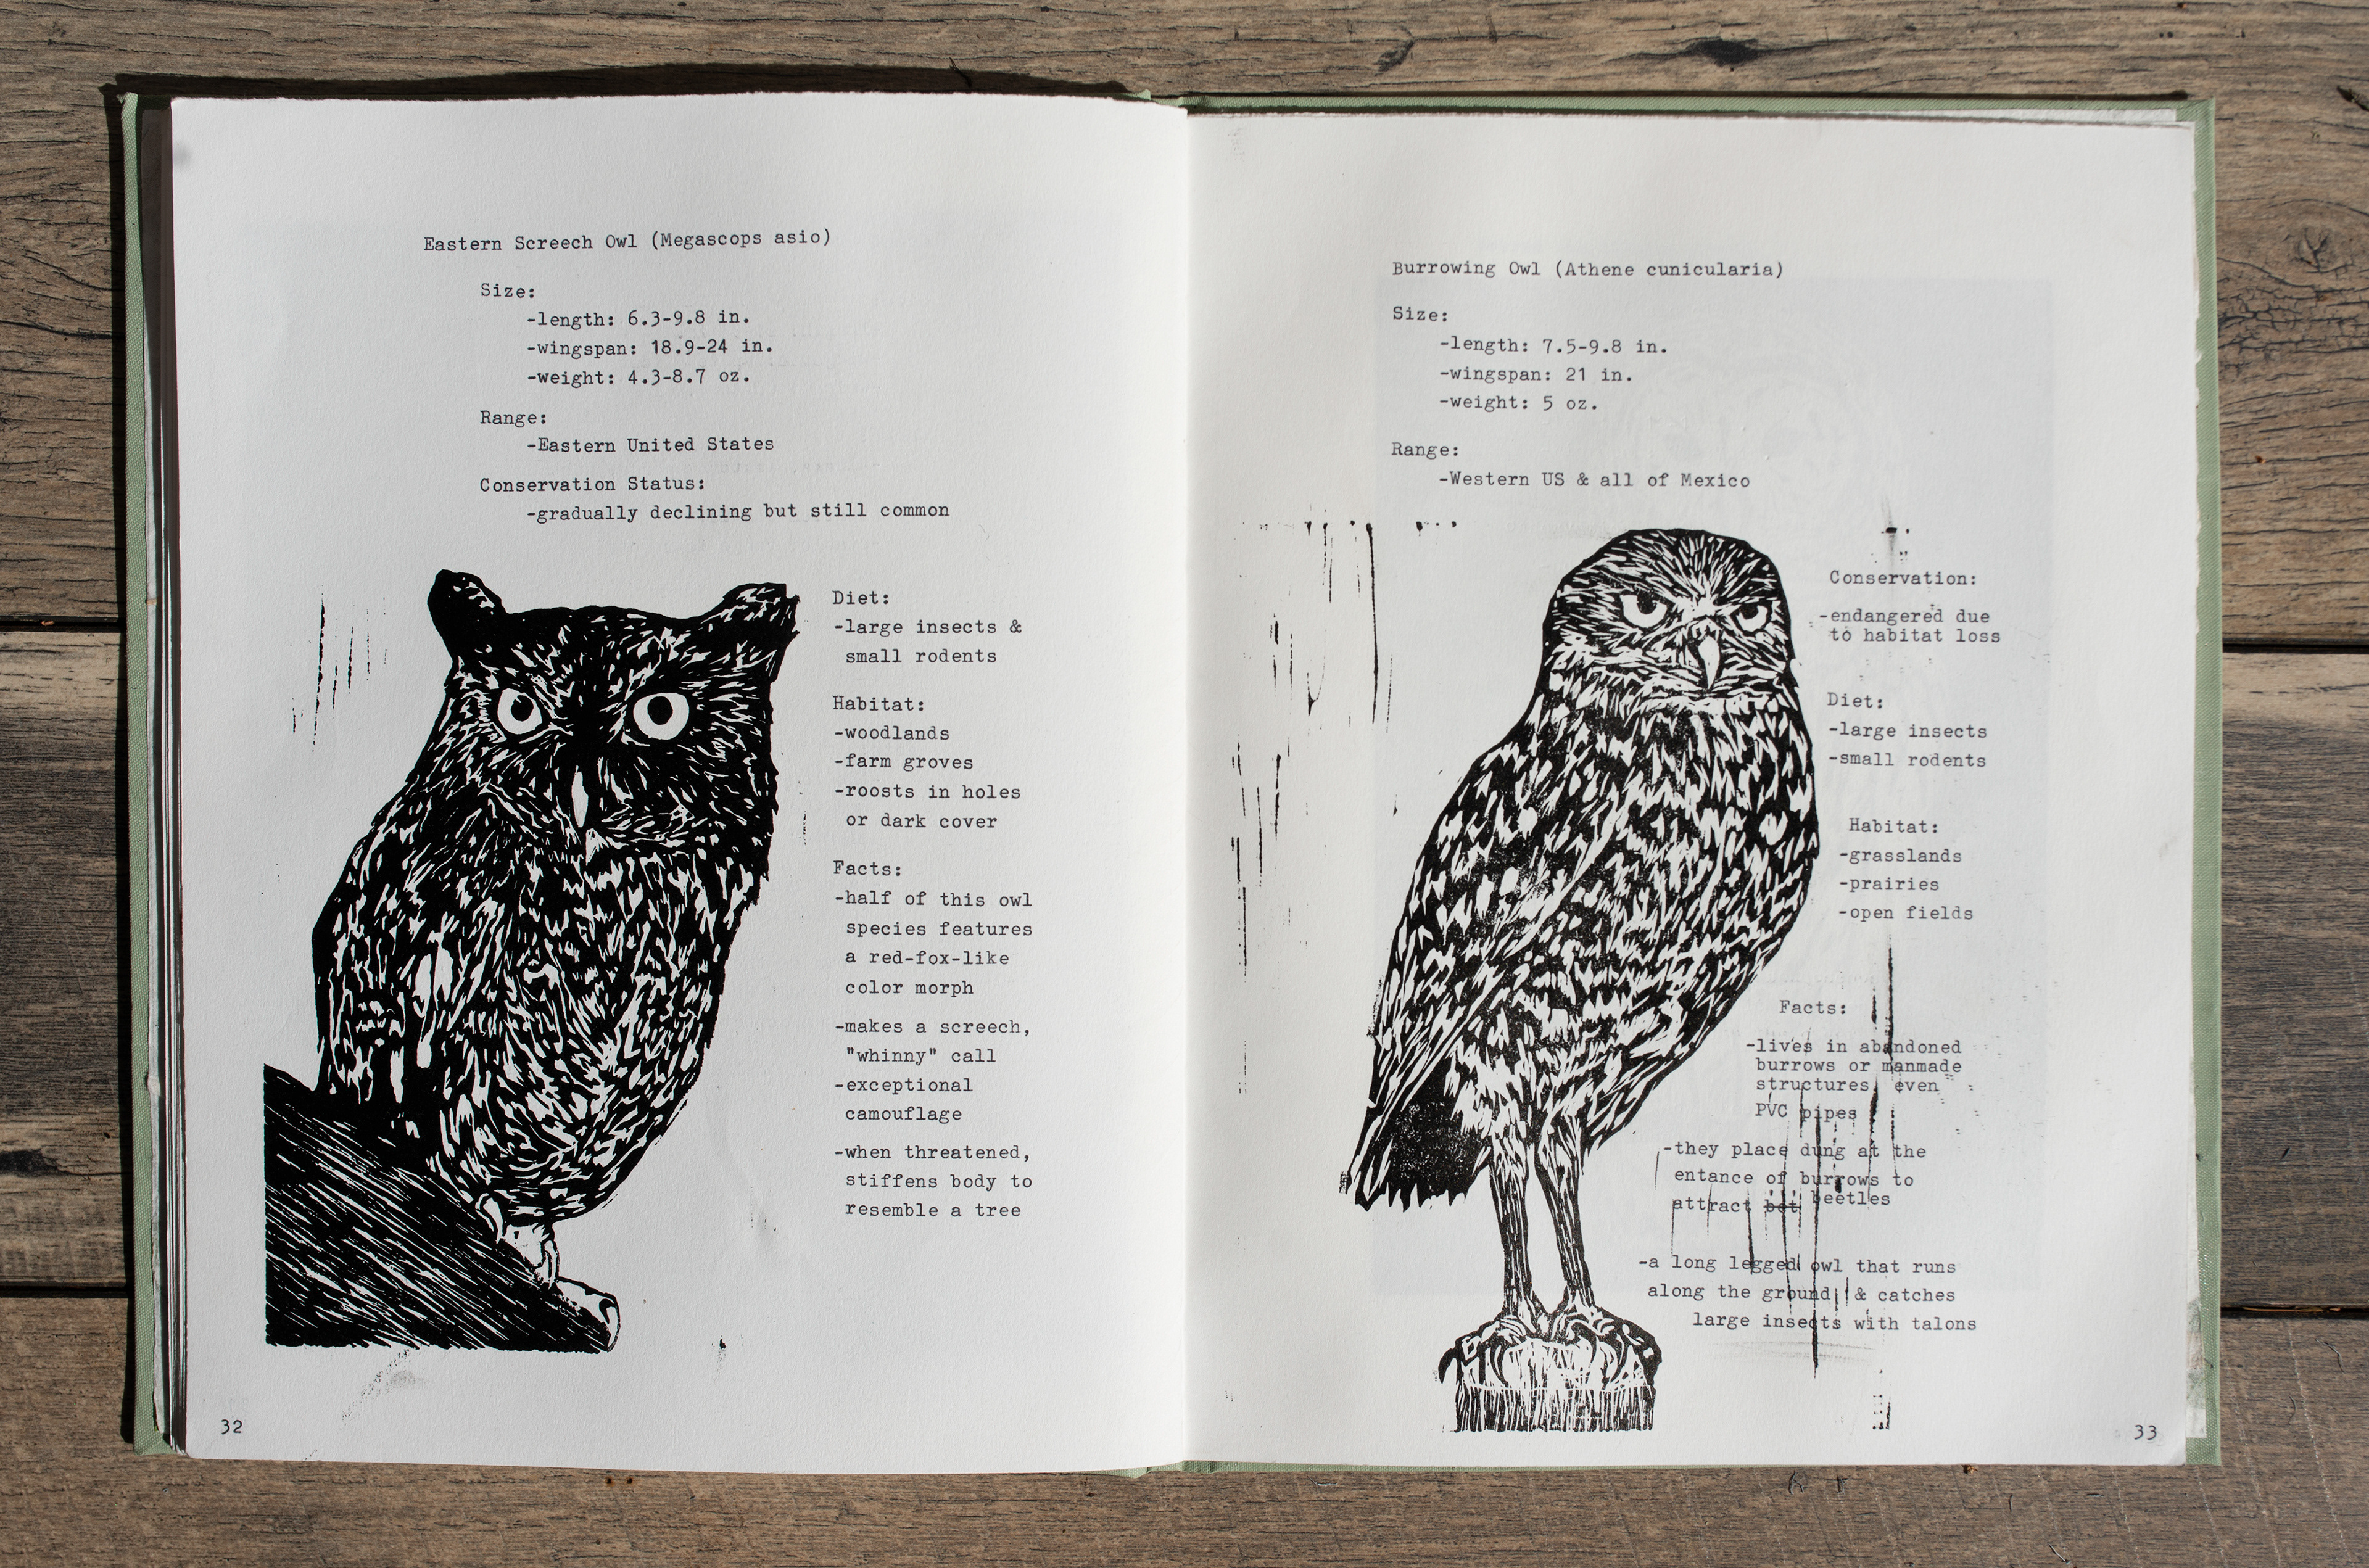 Eastern Screech Owl (Megascops asio)
Size:
-length: 6.3-9.8 in.
-wingspan: 18.9-24 in.
-weight: 4.3-8.7 oz.
Range:
-Eastern United States
Conservation Status:
-gradually declining but still common
Diet:
-large insects &
small rodents
Habitat:
-woodlands
-farm groves
-roosts in holes
or dark cover
Facts:
-half of this owl
species features
a red-fox-like
color morph
-makes a screech,
"whinny" call
-exceptional
camouflage
-when threatened,
stiffens body to
resemble a tree
32
Burrowing Owl (Athene cunicularia)
Size:
-length: 7.5-9.8 in.
-wingspan: 21 in.
-weight: 5 oz.
Range:
-Western US & all of Mexico
Conservation:
-endangered due
to habitat loss
Diet:
-large insects
-small rodents
Habitat:
-grasslands
-prairies
-open fields
Facts:
-lives in abandoned
burrows or manmade
structures, even
PVC pipes
-they place dung at the
entance of burrows to
attract beetles
-a long legged owl that runs
along the ground & catches
large insects with talons
33